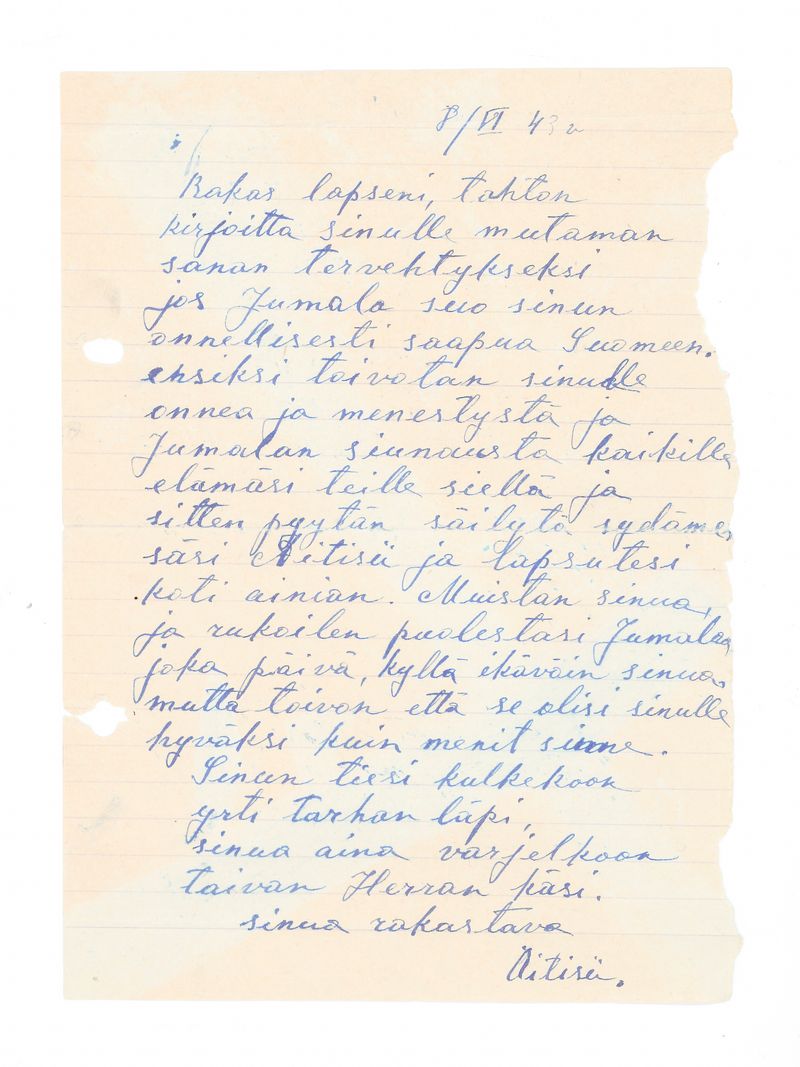 8/VI 43 v
Rakas lapseni, tahton
kirjoitta sinulle mutaman
sanan tervehtykseksi
jos Jumala suo sinun
onnellisesti saapua Suomeen.
ensiksi toivotan sinulle
onnea ja menestystä ja
Jumalan siunausta kaikille
elämäsi teille siellä ja
sitten pyytän säilytä sydäme
säsi Äitisii ja lapsutesi
koti ainian. Muistan sinua,
ja rukoilen puolestasi Jumalaa
joka päivä, kyllä ikävöin sinua,
mutta toivon että se olisi sinulle
hyväksi kuin menit sinne.
Sinun tiesi kulkekoon
yrti tarhan läpi,
sinua aina varjelkoon
taivan Herran käsi.
sinua rakastava
Äitisii.